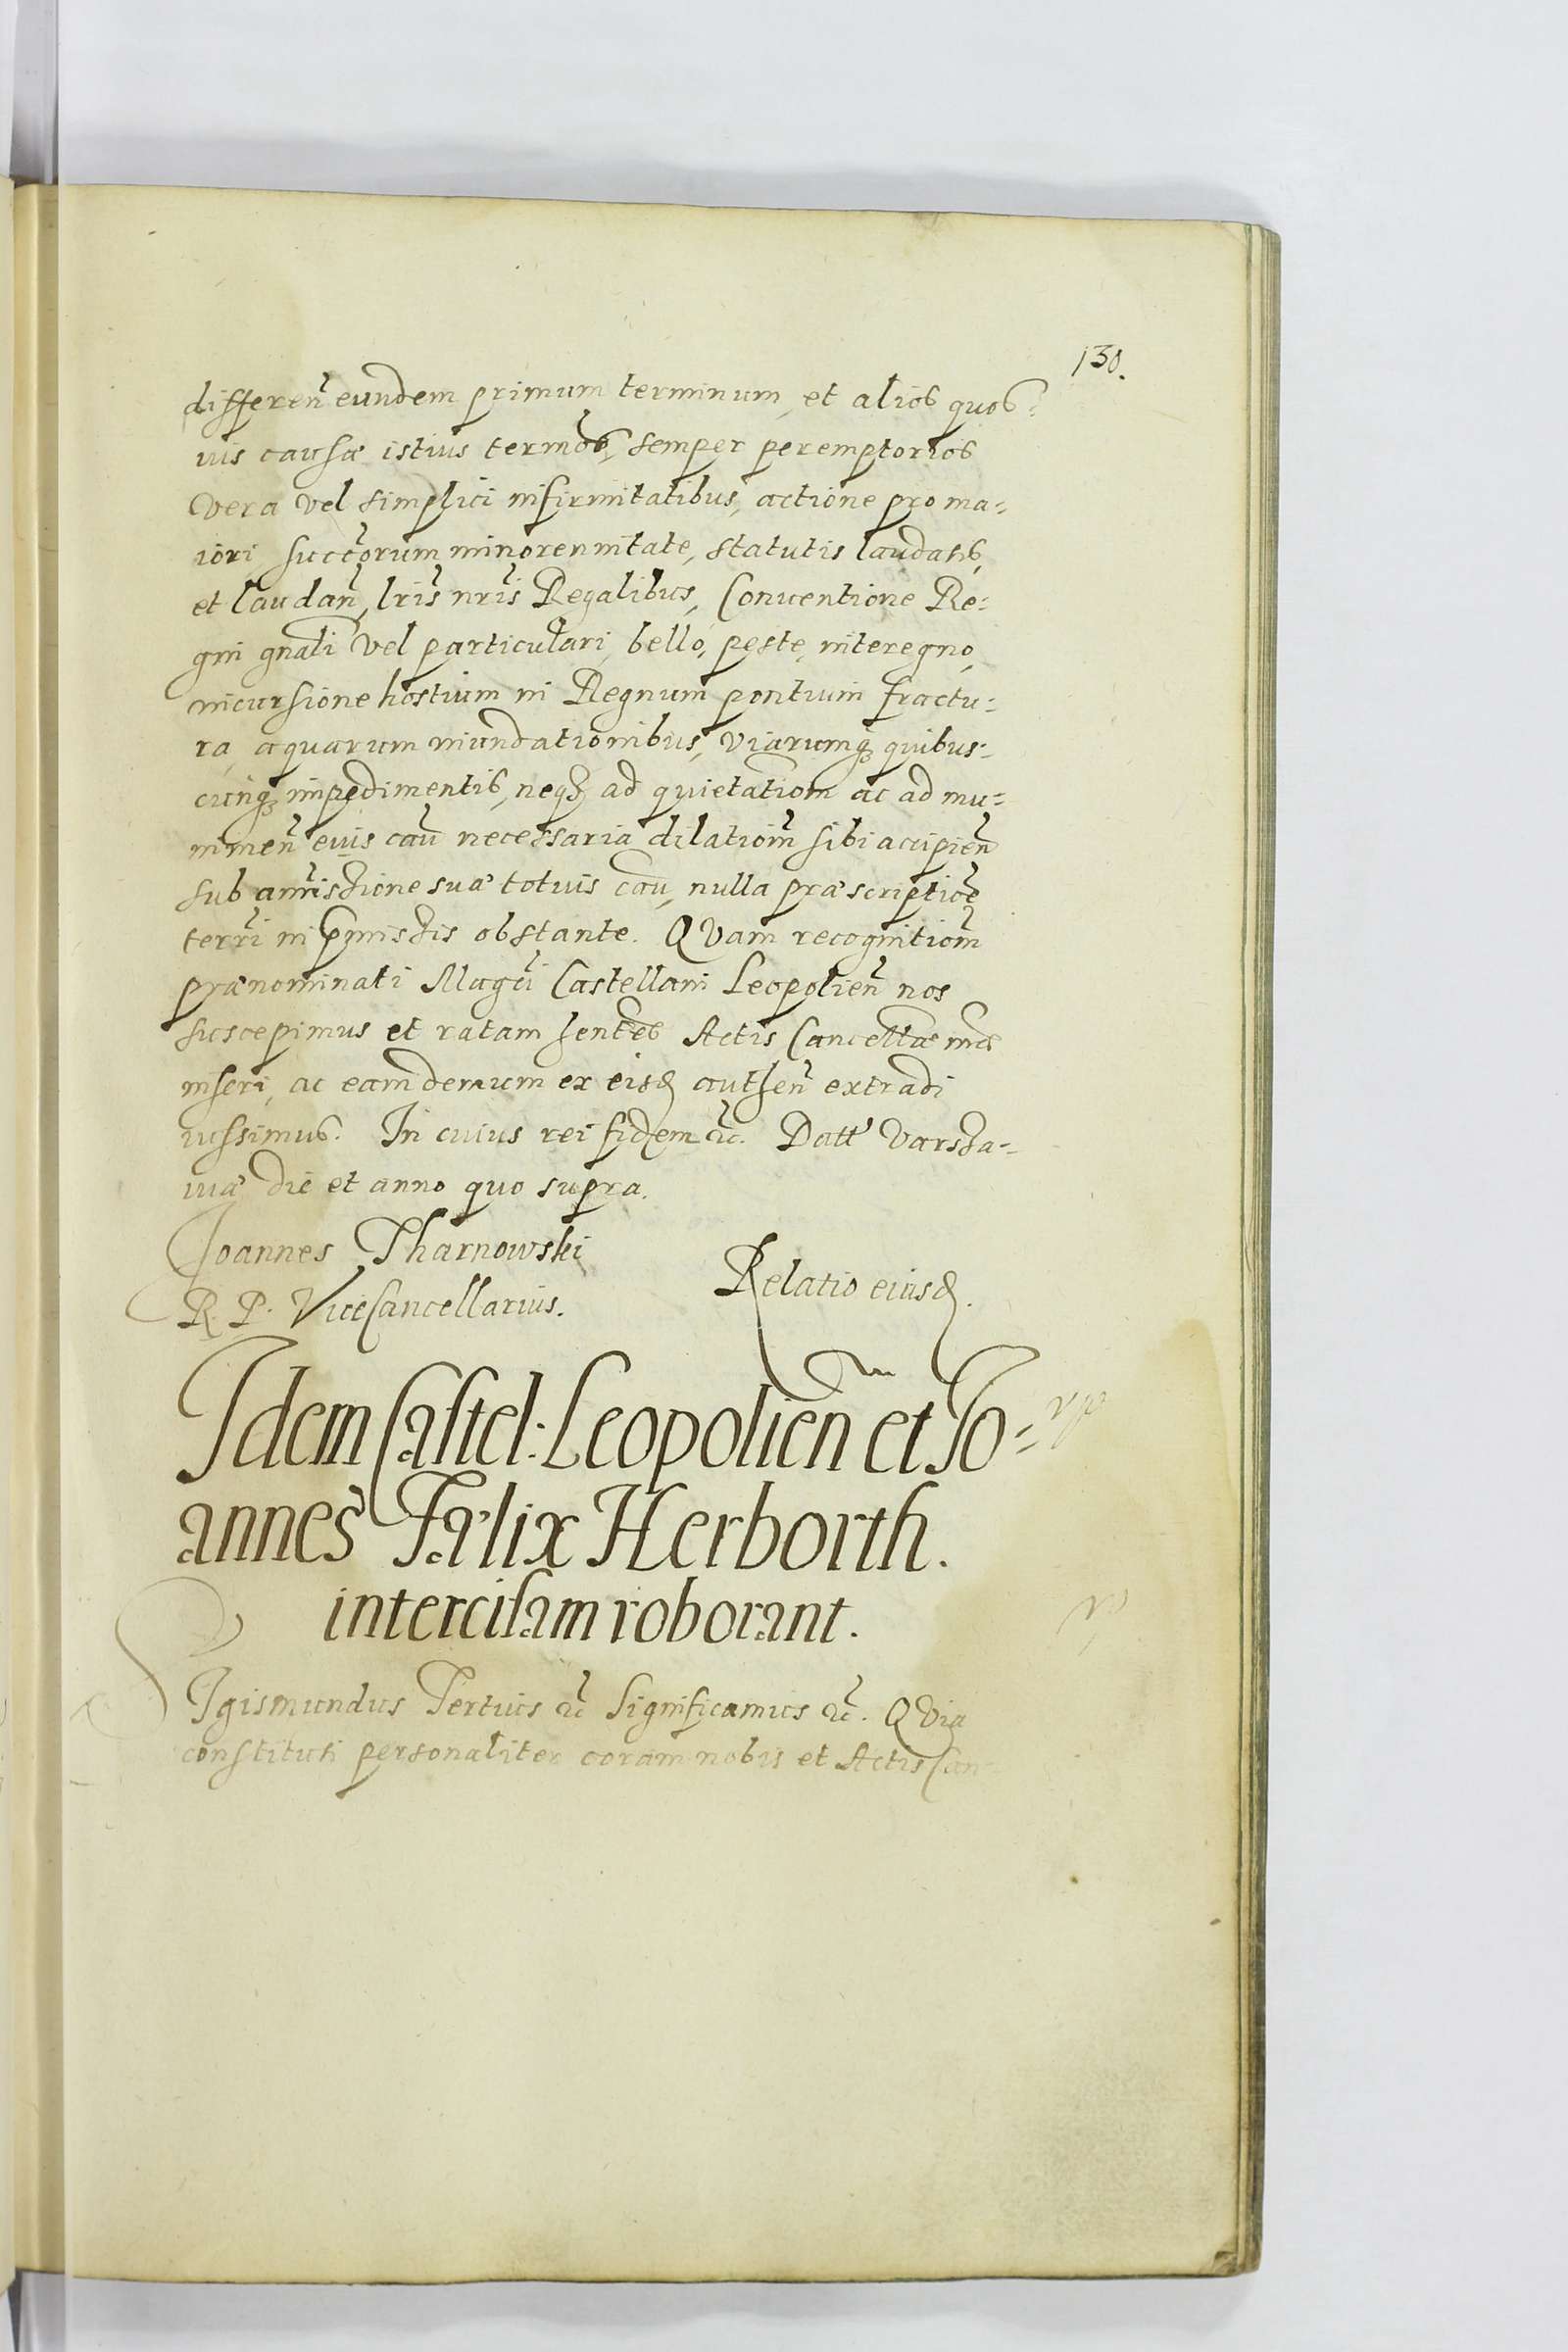 130.
differen̄ eundem primum terminum, et alios quos=
uis causæ istius termōs, semper peremptorios
vera vel simplici infirmitatibus, actione pro ma=
iori, succ̄orum minorennitate, statutis laudatis,
et laudan̄, lris̄ nris̄ Regalibus, Conuentione Re=
gni gn̄ali vel particulari, bello, peste, interegno,
incursione hostium in Regnum pontium fractu=
ra, aquarum inundationibus, viarumq; quibus=
cunq; impedimentis, neq; ad quietatiōm ac ad mu=
nimen̄ eius cau̅ necessaria dilatiōm sibi accipien̄
sub amissione suæ totius cau̅, nulla præscriptiōe
terrī in p̄missis obstante. QVam recognitiōm
prænominati Mag̅ci Castellani Leopolien̄ nos
suscepimus et ratam hentēs Actis Cancellae nrae
inseri, ac eam demum ex eisd authen̄ extradi
iussimus. In cuius rei fidem &c. Datt' Varsza=
uiæ die et anno quo supra.
Joannes Tharnowski
R. P. ViceCancellarius.
Relatio eiusd.
Idem Castel: Leopolien̄ et Jo=
annes Fælix Herborth.
intercisam roborant.
SIgismundus Tertius &c Significamus &c. QVia
constituti personaliter coram nobis et Actis Can